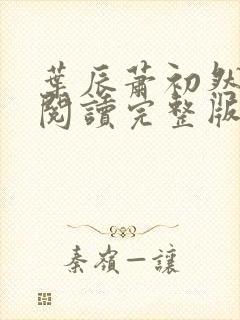 葉辰蕭初然
閱讀完整版
秦嶺一讓